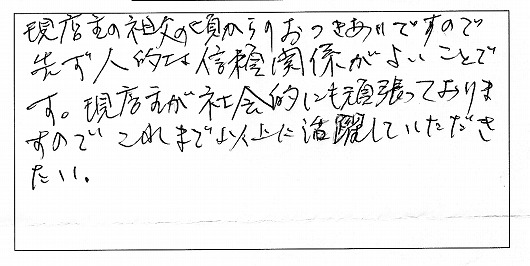 現店主の祖父の頃からのおつきあいですので
先ず人的な信頼関係がよいことで
す。現店主が社会的にも頑張っておりま
すので これまで以上に活躍していただき
たい。